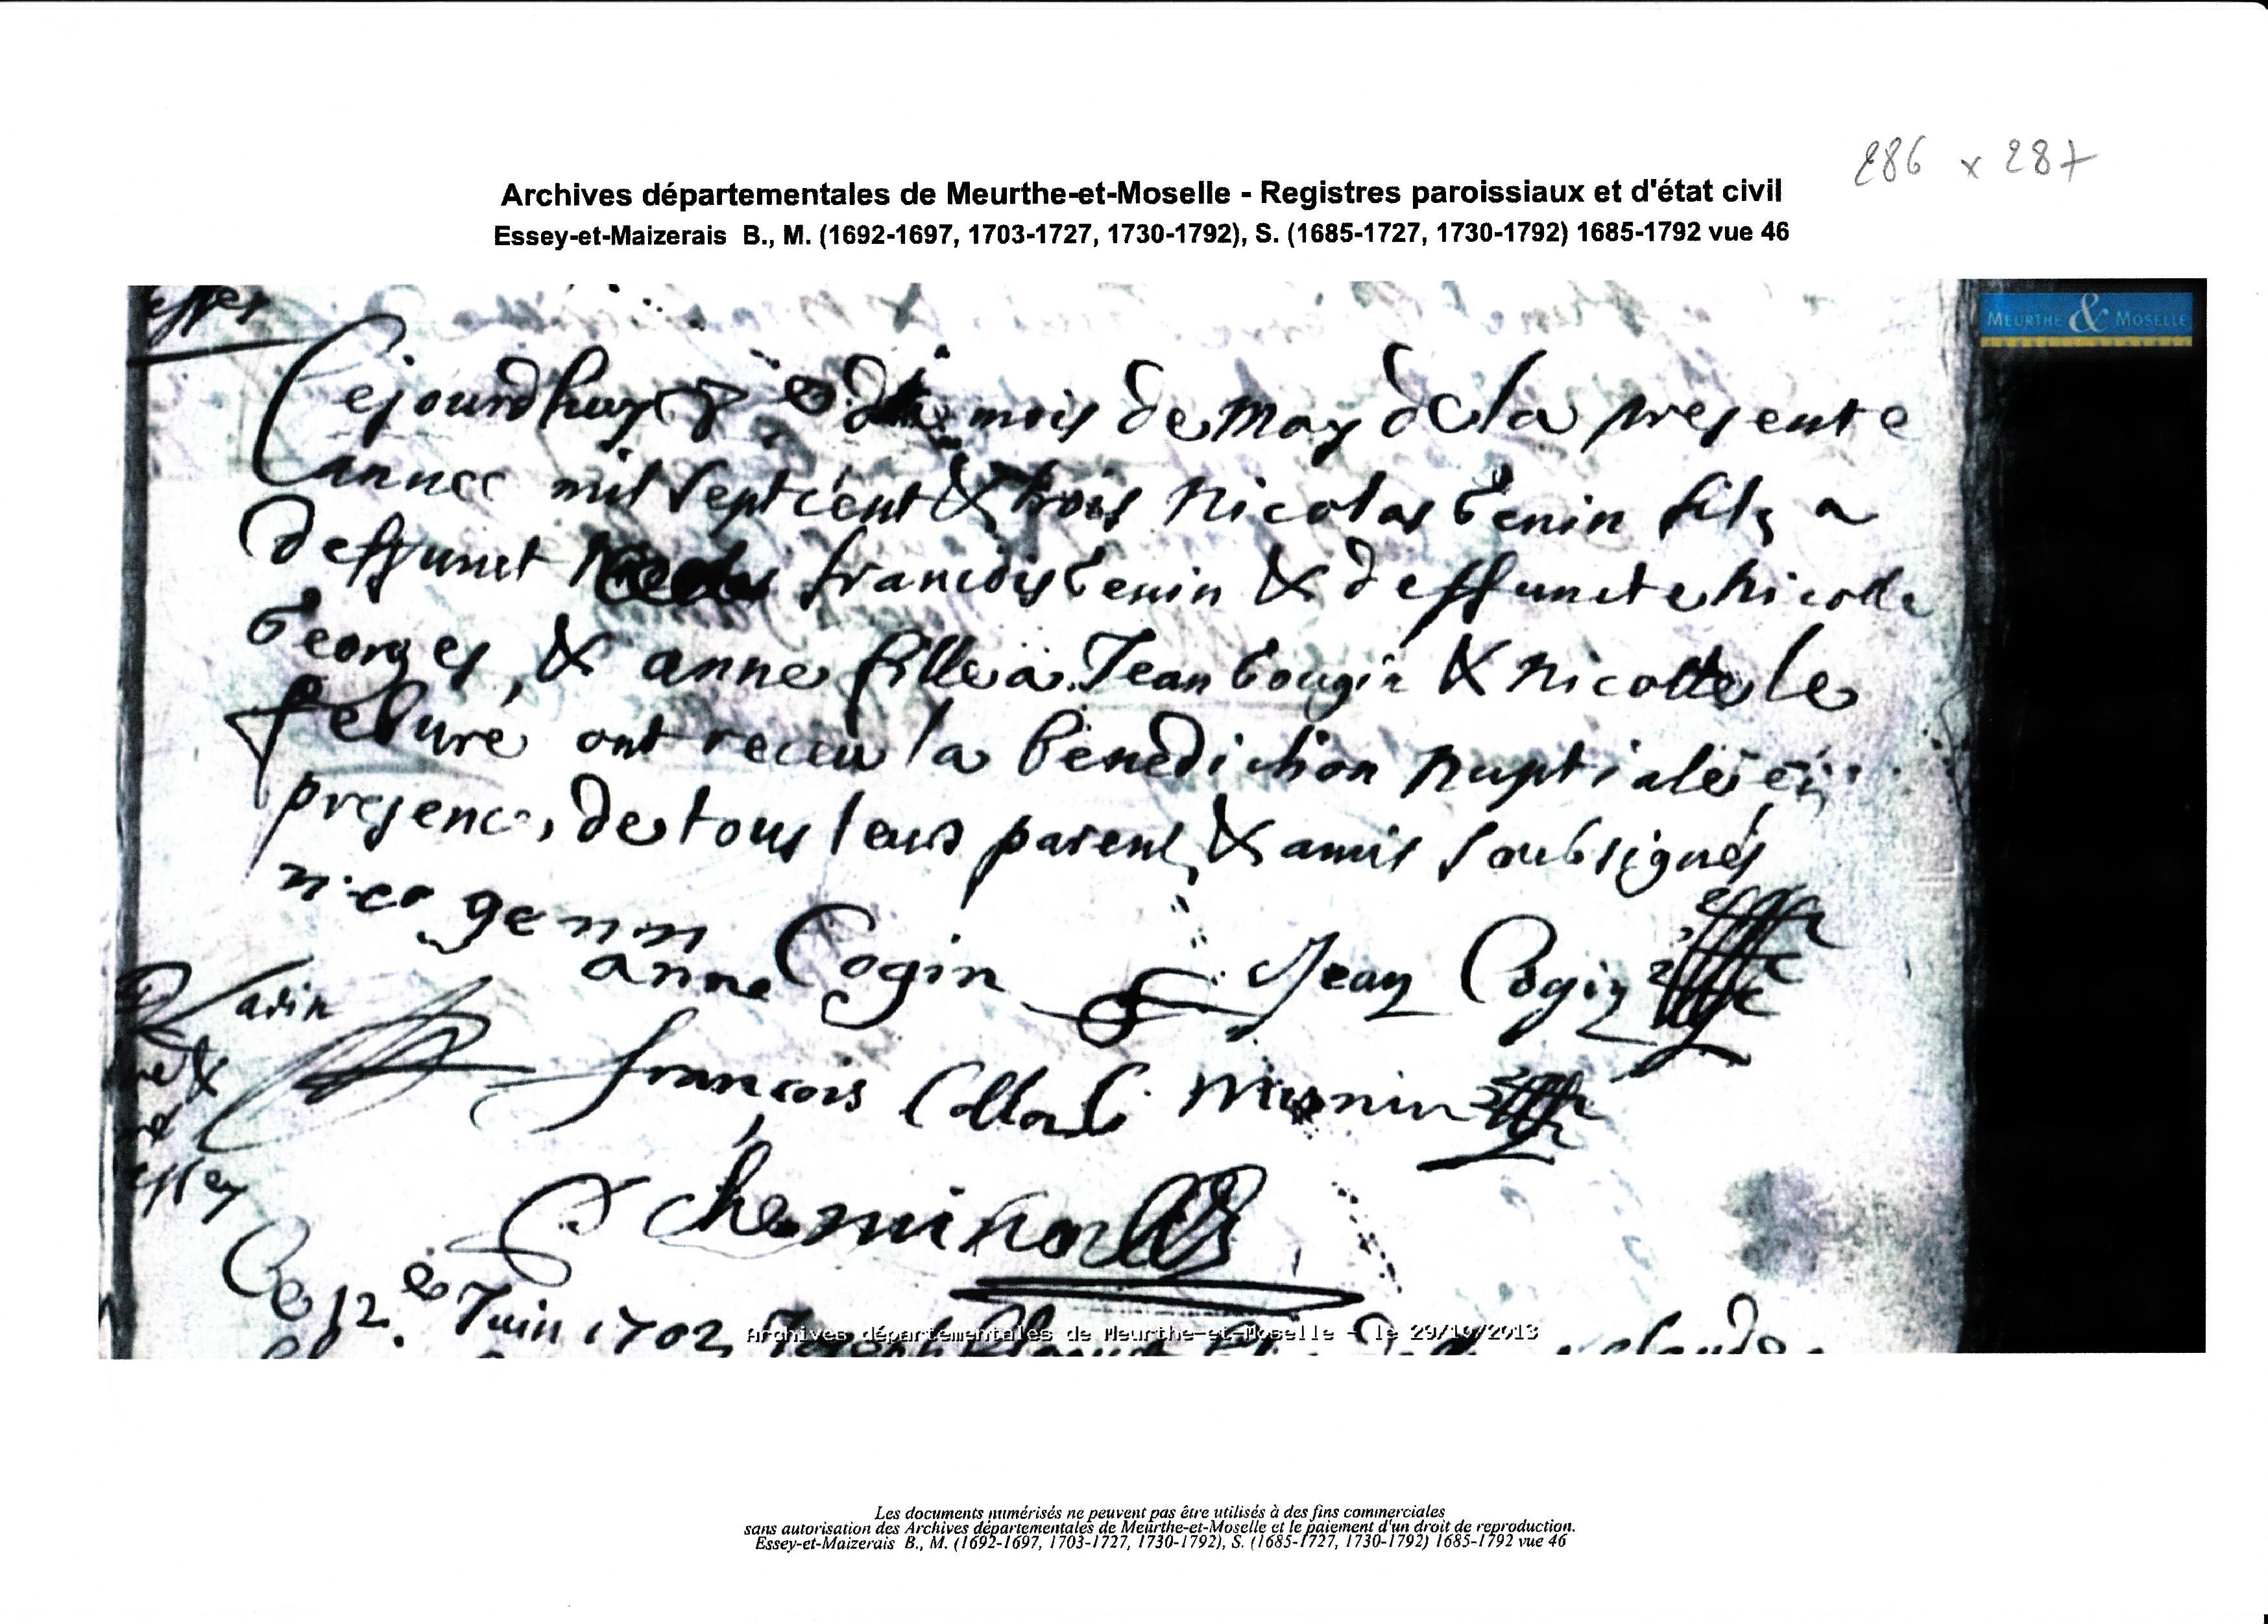 286 x 287
Archives départementales de Meurthe-et-Moselle - Registres paroissiaux et d'état civil
Essey-et-Maizerais B., M. (1692-1697, 1703-1727, 1730-1792), S. (1685-1727, 1730-1792) 1685-1792 vue 46
MEURTHE & MOSELLE
Cejourdhuy mois de may dela presente
annee mil sept cent & trois Nicolas Genin fils a
deffunct francois Genin & deffuncte Nicolle
Georges, & anne fille a Jean Gougin & Nicolle le
febure ont receu la benediction nuptiale en
presence, de tous leurs parents & amis soubsignés
nico genin
anne Cogin Jean Cogin
francois Collas Munin
Cheminot
Ce 12e Juin 1703
Archives départementales de Meurthe-et-Moselle - le 29/10/2013
Les documents numérisés ne peuvent pas être utilisés à des fins commerciales
sans autorisation des Archives départementales de Meurthe-et-Moselle et le paiement d'un droit de reproduction.
Essey-et-Maizerais B., M. (1692-1697, 1703-1727, 1730-1792), S. (1685-1727, 1730-1792) 1685-1792 vue 46